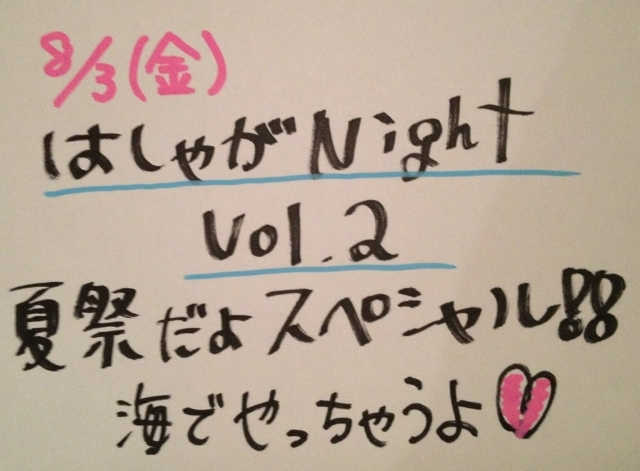 8/3(金)
はしゃがNight
Vol.2
夏祭だよスペシャル!!
海でやっちゃうよ